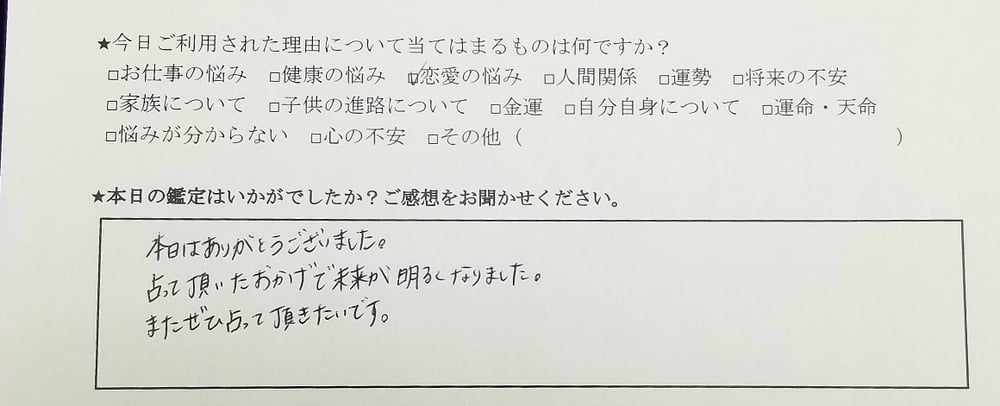 ★今日ご利用された理由について当てはまるものは何ですか？
□お仕事の悩み □健康の悩み ☑恋愛の悩み □人間関係 □運勢 □将来の不安
□家族について □子供の進路について □金運 □自分自身について □運命・天命
□悩みが分からない □心の不安 □その他（ ）
★本日の鑑定はいかがでしたか？ご感想をお聞かせください。
本日はありがとうございました。
占って頂いたおかげで未来が明るくなりました。
またぜひ占って頂きたいです。